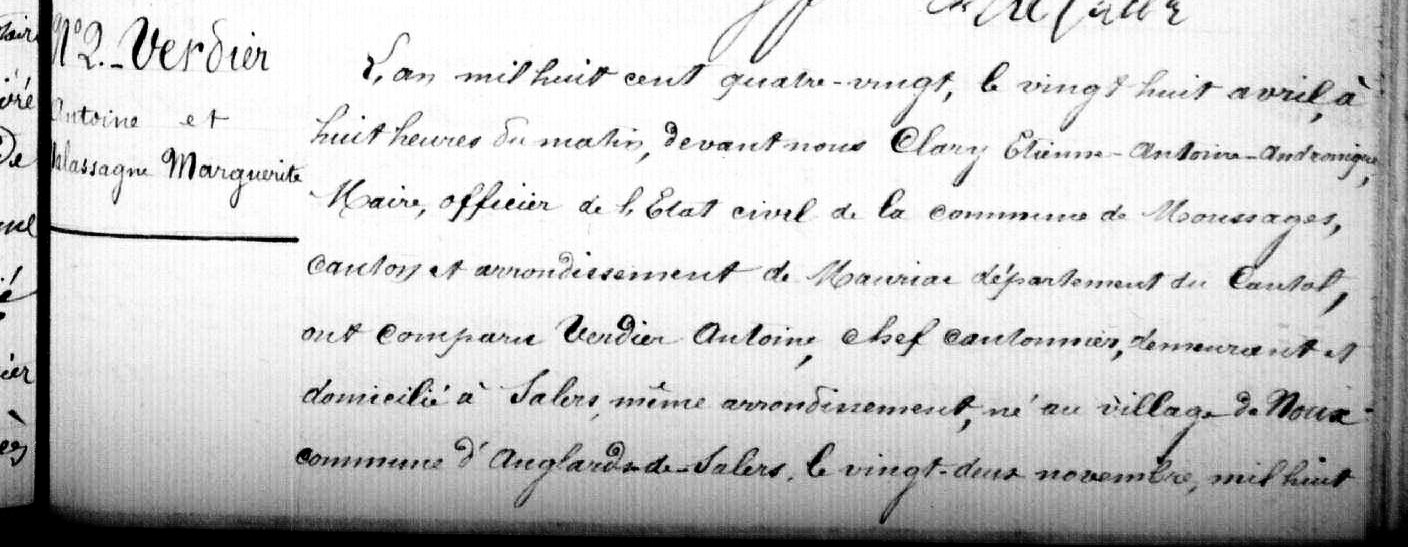 N° 2. - Verdier
Antoine et
Marguerite
L'an mil huit cent quatre-vingt, le vingt huit avril, à
huit heures du matin, devant nous Clary Etienne-Antoine-Andronique,
Maire, officier de l'Etat civil de la commune de Moussages,
canton et arrondissement de Mauriac département du Cantal,
ont comparu Verdier Antoine, chef cantonnier, demeurant et
domicilié à Salers, même arrondissement, né au village de Noux
commune d'Anglards-de-Salers, le vingt-deux novembre, mil huit